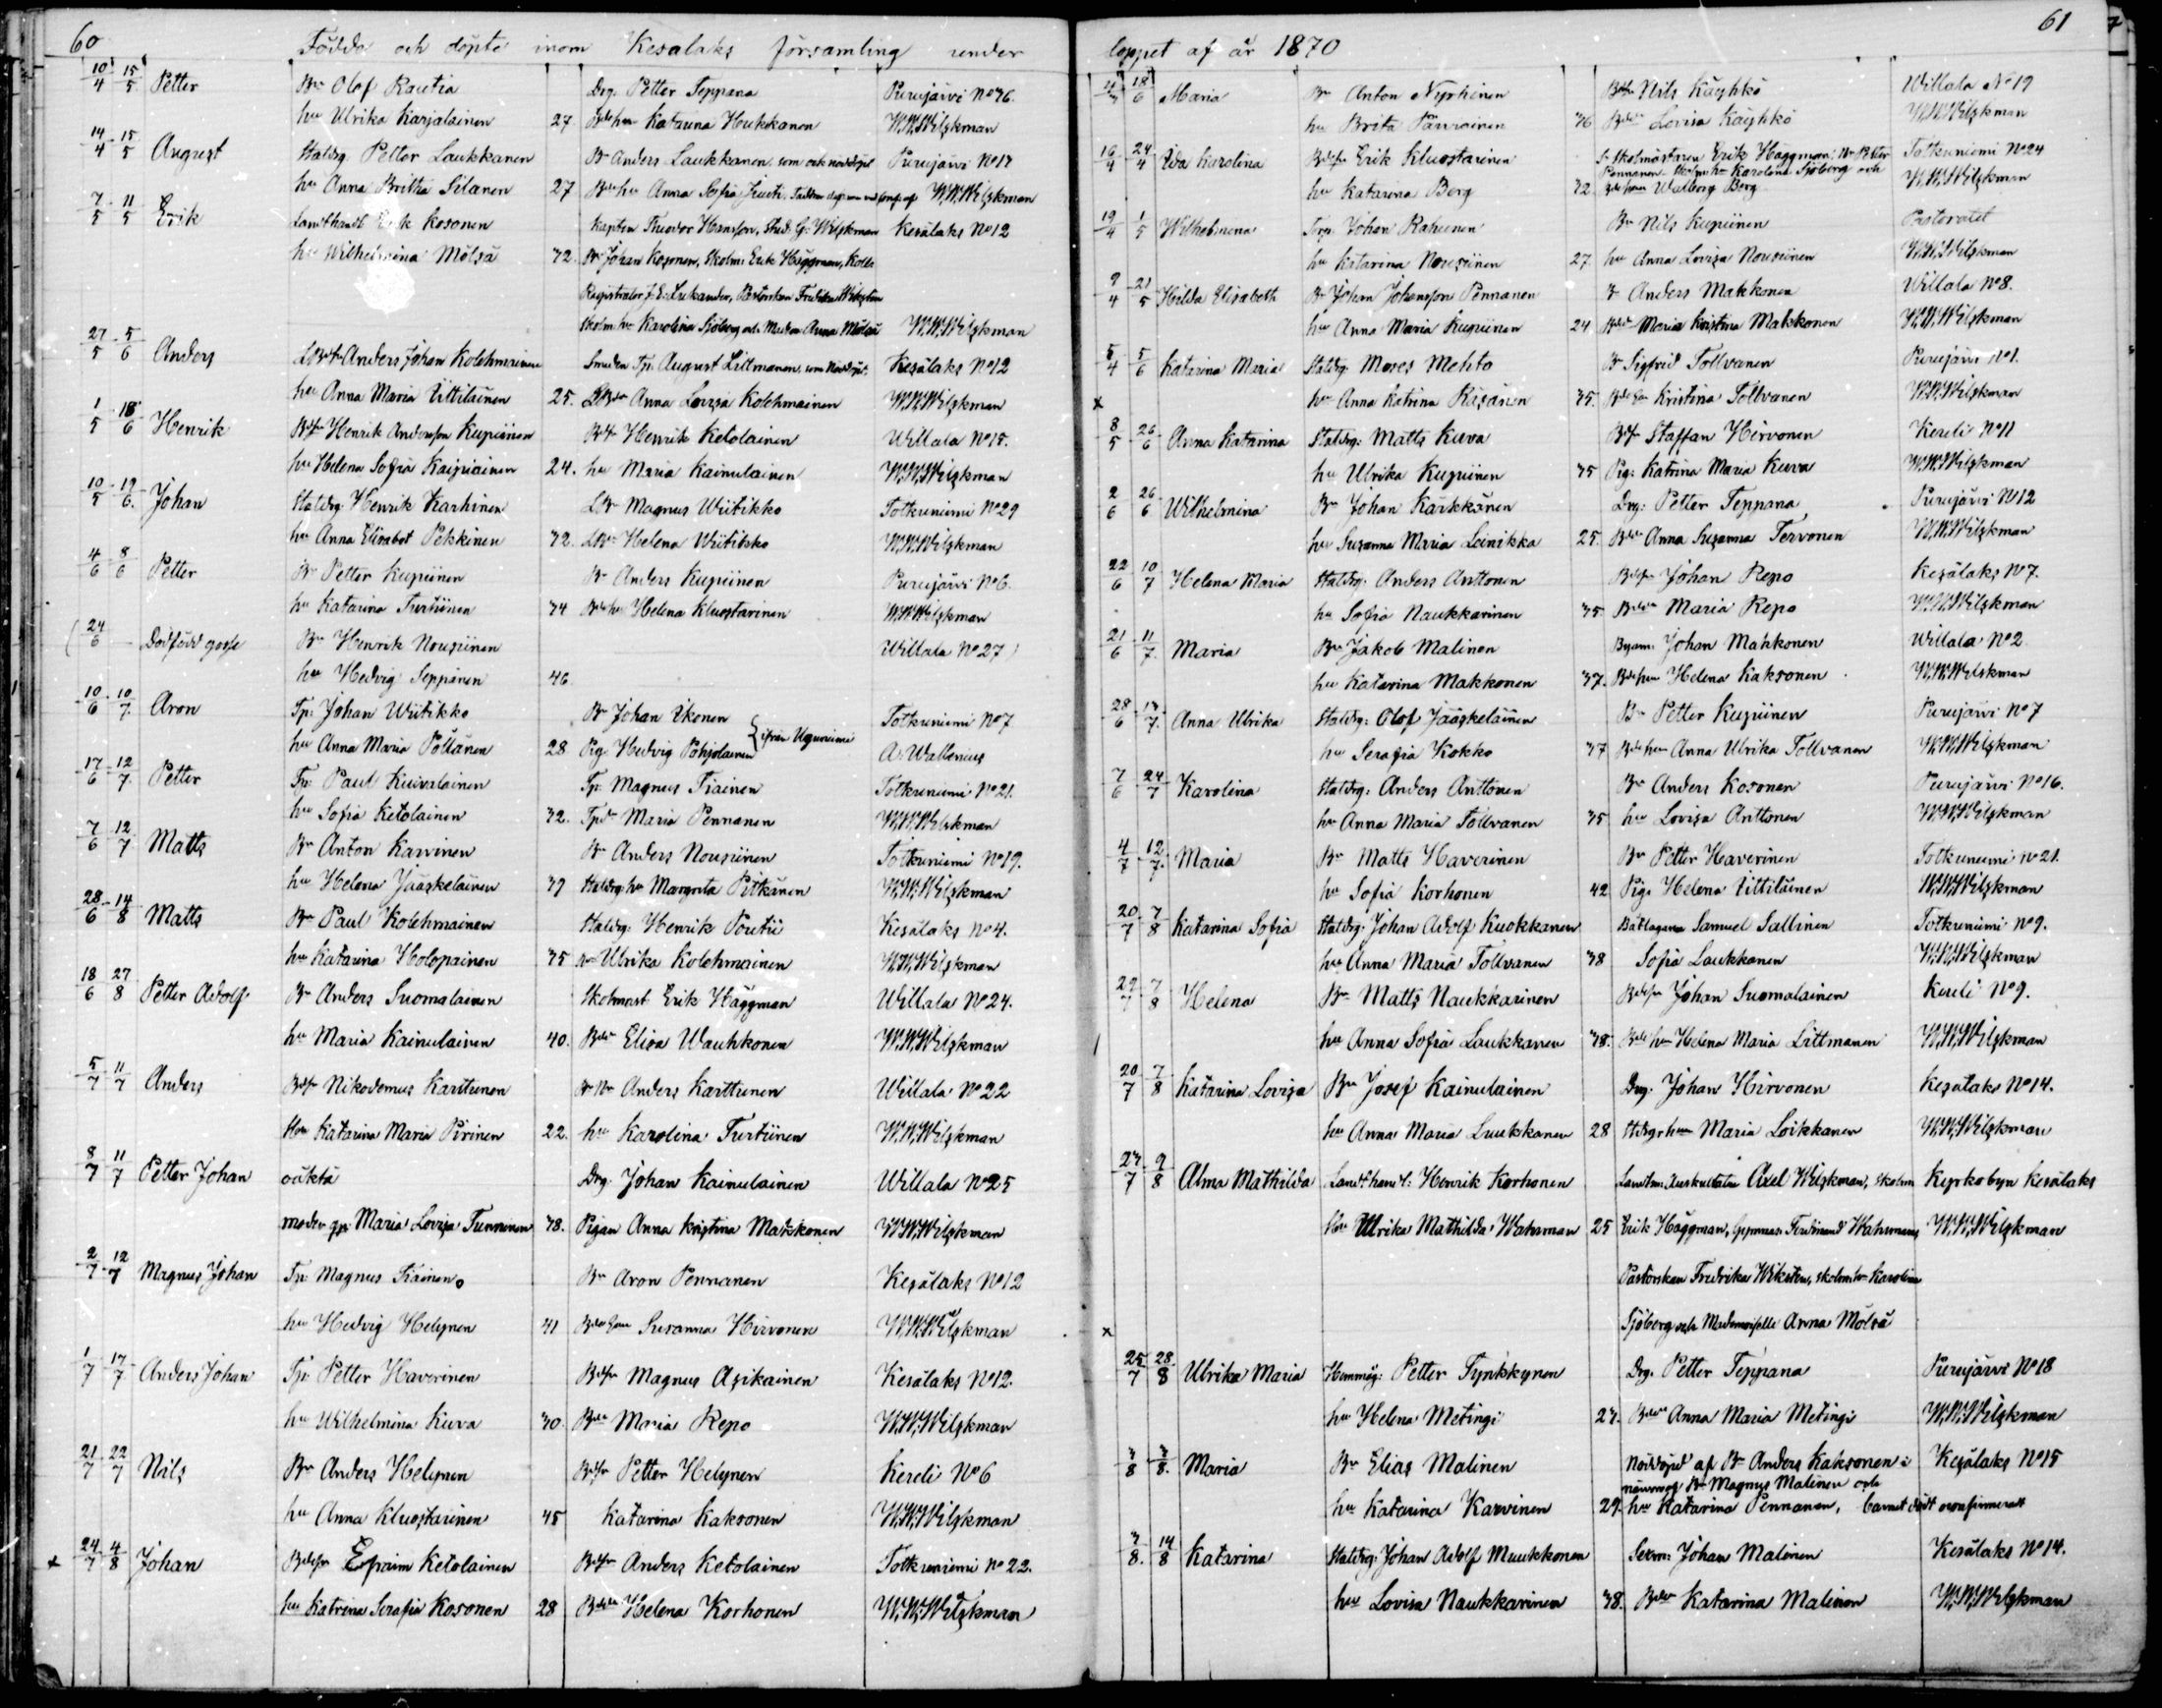 60
Födda och döpte inom Kesälaks församling under
10/4 15/5 Petter Bn Olof Rautia Drg. Petter Teppana Purujärvi No 36.
hu Ulrika Karjalainen 27 Katarina Houkkanen W.W.Wilskman
14/4 15/5 August Staldrg. Petter Laukkanen Bn Anders Laukkanen som ock nöddöpt Purujärvi No 17
hu Anna Britha Silanen 27 hu Anna Sofia W.W.Wilskman
7/5 11/5 Erik Landthandl. Erik Kosonen Kapten Theodor Hansson, Stud. G. Wilskman Kesälaks No 12
hu Wilhelmina Mölsä 32. Bn Johan Kosonen, Skolm: Erik Häggman, Koll:
Registrator J.E. Lukander, Pastorskan Fredrika Wiksten
Skolm. hu Karolina Sjöberg och Anna Mölsä W.W.Wilskman
27/5 5/6 Anders Anders Johan Kolehmainen Smeden Tp: August Littmanen, som Nöddöpt. Kesälaks No 12
hu Anna Maria Tittiläinen 25. Anna Lovisa Kolehmainen W.W.Wilskman
1/5 18/6 Henrik Henrik Andersson Kupiinen Henrik Ketolainen Willala No 15.
hu Helena Sofia Kaipiainen 24. hu Maria Kainulainen W.W.Wilskman
10/5 19/6. Johan Staldrg. Henrik Karhinen Magnus Wiitikko Totkuniemi No 29
hu Anna Elisabet Pekkinen 32. Helena Wiitikko W.W.Wilskman
4/6 8/6 Petter Bn Petter Kupiinen Bn Anders Kupiinen Purujärvi No 6.
hu Katarina Turtiinen 34 Helena Kluostarinen W.W.Wilskman
(24/6 Dödfödd gosse Bn Henrik Nousiinen Willala No 27)
hu Hedvig Seppänen 46
10/6 10/7 Aron Tp: Johan Wiitikko Bn Johan Ikonen Totkuniemi No 7
hu Anna Maria Pöllänen 28 Pig. Hedvig Pohjolainen } ifrån Uguniemi A. Wallenius
17/6 12/7 Petter Tp: Paul Kuivalainen Tp. Magnus Tiainen Totkuniemi No 21.
hu Sofia Ketolainen 32. Maria Pennanen W.W.Wilskman
7/6 12/7 Matts Bn Anton Karvinen Bn Anders Nousiinen Totkuniemi No 19.
hu Helena Jääskeläinen 39 Staldrg. hu Margreta Pitkänen W.W.Wilskman
28/6 14/8 Matts Bn Paul Kolehmainen Staldrg: Henrik Poutii Kesälaks No 4.
hu Katarina Holopainen 35 hu Ulrika Kolehmainen W.W.Wilskman
18/6 27/8 Petter Adolf Bn Anders Suomalainen Skolmäst Erik Häggman Willala No 24.
hu Maria Kainulainen 40. Elisa Wauhkonen W.W.Wilskman
5/7 11/7 Anders Nikodemus Karttunen Anders Karttunen Willala No 22
Hu Katarina Maria Pirinen 22. hu Karolina Turtiinen W.W.Wilskman
8/7 11/7 Petter Johan oäkta Drg. Johan Kainulainen Willala No 25
moder Maria Lovisa Tunnonen 38. Pigan Anna Kristina Makkonen W.W.Wilskman
2/7 12/7 Magnus Johan Tp: Magnus Tiainen Bn Aron Pennanen Kesälaks No 12
hu Hedvig Helynen 41 Susanna Hirvonen W.W.Wilskman
1/7 17/7 Anders Johan Tp: Petter Haverinen Magnus Asikainen Kesälaks No 12.
hu Wilhelmina Kuva 30. Maria Repo W.W.Wilskman
21/7 22/7 Nils Bn Anders Helynen Petter Helynen Kereli No 6
hu Anna Kluostarinen 45 Katarina Kaksonen W.W.Wilskman
x 24/7 4/8 Johan Efraim Ketolainen Anders Ketolainen Totkuniemi No 22.
hu Katrina Serafia Kosonen 28 Helena Korhonen W.W.Wilskman
61
loppet af år 1870
18/6 Maria Bn Anton Nyrhinen Nils Käyhkö Willala No 19
hu Brita Parviainen 36 Lovisa Käyhkö W.W.Wilskman
16/4 24/4 Ida Karolina Erik Kluostarinen Skolmästaren Erik Häggman, Petter Totkuniemi No 24
Pennanen Skolm: hu Karolina Sjöberg och
hu Katarina Berg 32 Walborg Berg W.W.Wilskman
19/4 1/5 Wilhelmina Torp: Johan Rahunen Bn Nils Kupiinen Pastoratet
hu Katarina Nousiinen 27. hu Anna Lovisa Nousiinen W.W.Wilskman
9/4 21/5 Hilda Elisabeth Bn Johan Johansson Pennanen Bn Anders Makkonen Willala No 8.
hu Anna Maria Kupiinen 24 Maria Kristina Makkonen W.W.Wilskman
5/4 5/6 Katarina Maria Staldrg: Moses Mehto Bn Sigfrid Tollvanen Purujärvi No 1.
x hu Anna Katrina Räsänen 35. Kristina Tollvanen W.W.Wilskman
8/5 26/6 Anna Katarina Staldrg: Matts Kuva Staffan Hirvonen Kereli No 11
hu Ulrika Kupiinen 35 Pig: Katrina Maria Kuva W.W.Wilskman
2/6 26/6 Wilhelmina Bn Johan Karkkänen Drg: Petter Teppana Purujärvi No 12
hu Susanna Maria Leinikka 25. Anna Susanna Tervonen W.W.Wilskman
22/6 10/7 Helena Maria Staldrg: Anders Anttonen Johan Repo Kesälaks No 7.
hu Sofia Naukkarinen 35. Maria Repo W.W.Wilskman
21/6 11/7. Maria Bn Jakob Malinen Johan Makkonen Willala No 2
hu Katarina Makkonen 37. Helena Kaksonen W.W.Wilskman
28/6 17/7. Anna Ulrika Staldrg: Olof Jääskeläinen Bn Petter Kupiinen Purujärvi No 7
hu Serafia Kokko 37 Anna Ulrika Tollvanen W.W.Wilskman
7/6 24/7 Karolina Staldrg: Anders Anttonen Bn Anders Kosonen Purujärvi No 16.
hu Anna Maria Tollvanen 35 hu Lovisa Anttonen W.W.Wilskman
4/7 12/7. Maria Bn Matts Haverinen Bn Petter Haverinen Totkuniemi No 21.
hu Sofia Korhonen 42 Pig: Helena Tittiläinen W.W.Wilskman
20/7 7/8 Katarina Sofia Staldrg: Johan Adolf Kuokkanen Båtlagaren Samuel Sallinen Totkuniemi No 9.
hu Anna Maria Tollvanen 38 Sofia Laukkanen W.W.Wilskman
29/7 7/8 Helena Bn Matts Naukkarinen Johan Suomalainen Kereli No 9.
hu Anna Sofia Laukkanen 38. Helena Maria Littmanen W.W.Wilskman
20/7 7/8 Katarina Lovisa Bn Josef Kainulainen Drg. Johan Hirvonen Kesälaks No 14.
hu Anna Maria Luukkonen 28 Maria Loikkanen W.W.Wilskman
27/7 9/8 Alma Mathilda Landthandl: Henrik Korhonen Landtm: Auskultaten Axel Wilskman, Skolm Kyrkobyn Kesälaks
Hu Ulrika Mathilda Wahrman 25 Erik Häggman, Gymnas: Ferdinand Wahrman, W.W.Wilskman
Pastorskan Fredrika Wiksten, skolm: hu Karolina
x Sjöberg och Mademoiselle Anna Mölsä
25/7 28/8 Ulrika Maria Hemmäg: Petter Tynkkynen Drg. Petter Teppana Purujärvi No 18
hu Helena Metingi 27. Anna Maria Metingi W.W.Wilskman
3/8 7/8. Maria Bn Elias Malinen Nöddöpt af Bn Anders Kaksonen i Kesälaks No 15
närvaro af Bn Magnus Malinen och
hu Katarina Karvinen 29. hu Katarina Pennanen, barnet dödt okonfirmeradt
3/8. 14/8 Katarina Staldrg: Johan Adolf Muukkonen Johan Malinen Kesälaks No 14.
hu Lovisa Naukkarinen 38. Katarina Malinen W.W.Wilskman